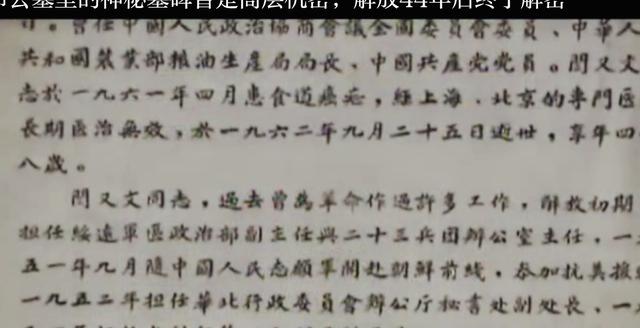 公墓里的神秘墓碑曾是高层机密，解放44年后终于解密
曾任中國人民政治協商會議全國委員會委員、中華人
共和國農業部粮油生產局局長、中國共產党党員。閻又文
志於一九六一年四月患食道癌症，經上海、北京的專門医
長期医治無效，於一九六二年九月二十五日逝世，享年四
八歲。
閻又文同志，過去曾為革命作過許多工作，解放初期
担任綏遠軍區政治部副主任與二十三兵团辦公室主任，一
五一年九月隨中國人民志願軍開赴朝鮮前線，参加抗美援
一九五二年担任華北行政委員會辦公厅秘書处副处長、一